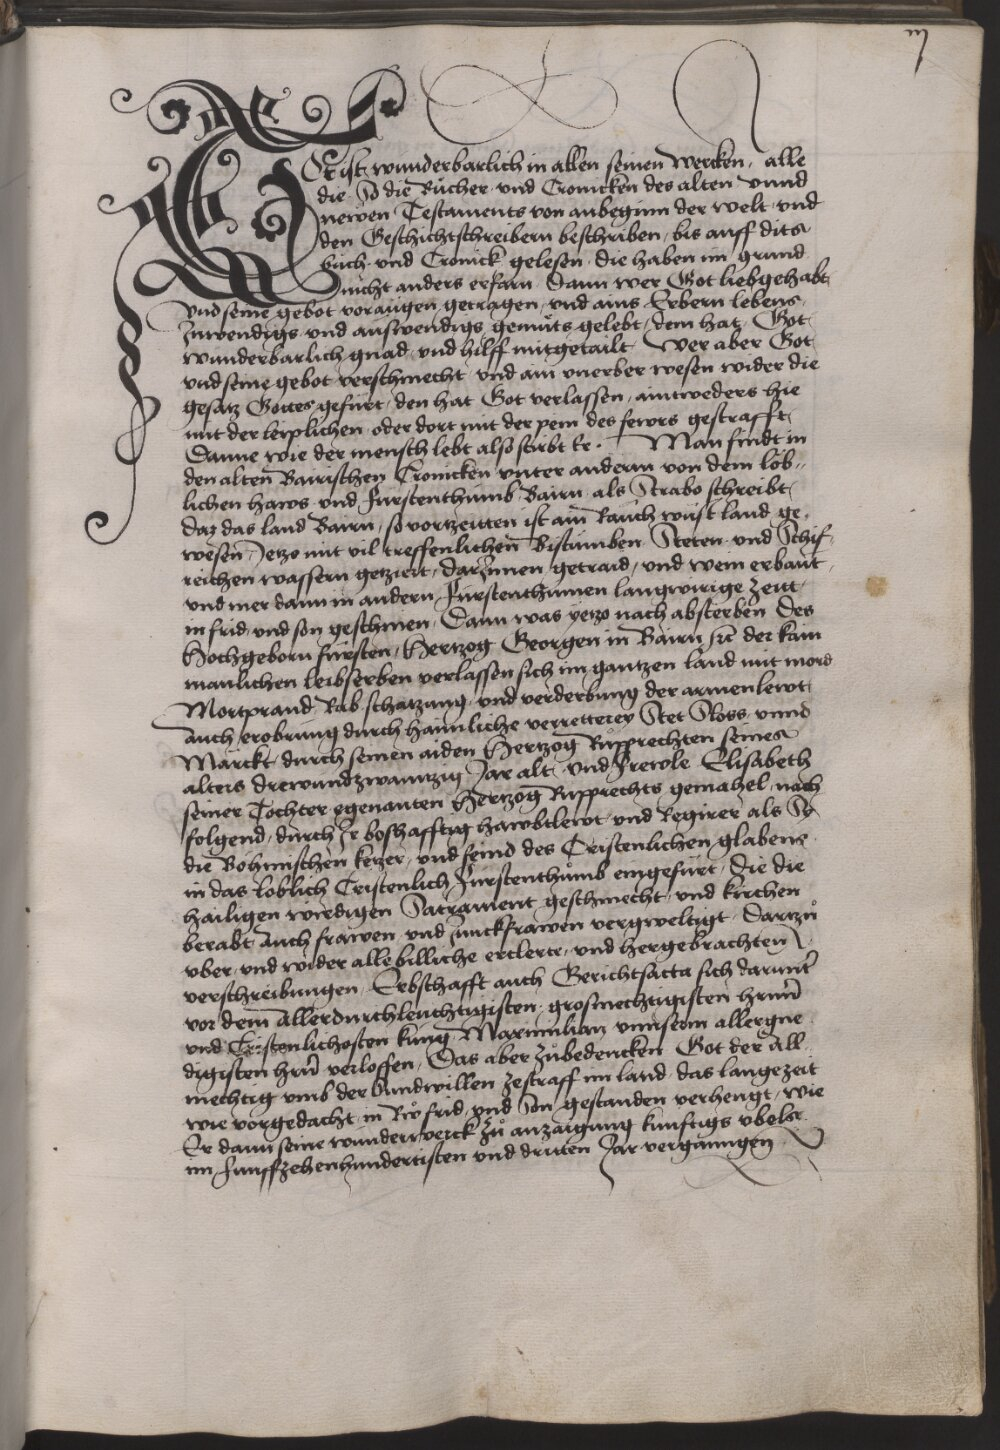 III
GOt ist wunderbarlich in allen seinen wercken, alle
die, So die Bücher und Cronicken des alten vnnd
newen Testaments von anbeginn der welt vnd
den Geschichtschreibern beschriben, bis auff dits
büch vnd Cronick gelesen, die haben im grund
nicht anders erfarn, Dann wer Got liebgehabt
vnd seine gebot voraugen getragen, vnd ains Erbern lebens
Inwendigs vnd auswendigs gemüts gelebt, dem hat Got
wunderbarlich gnad, vnd hilff mitgetailt, Wer aber Got
vnd seine gebot verschmecht, vnd ain vnerber wesen wider die
gesatz Gottes gefürt, den hat Got verlassen, aintweders hie
mit der leiplichen, oder dort mit der pein des fewrs gestrafft,
Danne wie der mensch lebt also stirbt Er. Man findt in
den alten Bairischen Cronicken vnter anderm von dem löb-
lichen haws vnd Fürstenthumb Bairn, als Strabo schreibt,
daz das land Bairn, so vortzeitten ist ain Rauch wüst land ge-
wesen, Jetzo mit vil treffenlichen Bistumben Steten vnd Schif-
reichen wassern getziert, darInnen getraid, vnd wein erbaut,
vnd mer dann in andern Fürstenthumen langwirige Zeit
in frid, vnd son geschinen, Dann was yetzo nach absterben des
Hochgeborn fürsten, Hertzog Georgen in Bairn etc der kain
manlichen leibserben verlassen sich im gantzen land mit mord
Mortprand Rab schatzung, vnd verderbung der armenlewt,
auch erobrung durch haimliche verretterey Stet Sloss vnnd
Märckt, durch seinen aiden Hertzog Ruprechten seines
alters drewundzwaintzig Jar alt, vnd frewle Elisabeth
seiner Tochter egenanten Hertzog Rupprechts gemahel, nach
folgend, durch Ir boshafftig hawbtlewt, vnd Regirer als Sy
die Bohmischen ketzer, vnd feind des Cristenlichen glabens
in das loblich Cristenlich Fürstenthumb eingefürt, Die die
hailigen wirdigen Sacrament geschmecht, vnd kirchen
berabt, Auch frawen, vnd Junckfrawen vergweltigt, Dartzů
vber, vnd wider alle billiche erclerte, vnd hergebrachten
verschreibungen, Erbschafft auch Gerichtsacta sich darunter
vor dem Allerdurchleuchtigisten, grosmechtigisten hrnn
vnd Cristenlichosten küng Maximilian vnnserm allergne
digisten hrn verloffen, Das aber zůbedencken Got der All
mechtig vmb der Sundwillen zestraff im land das langezeit
wie vorgedacht, in Rw frid, vnd Son gestanden verhengt, wie
Er dann seine wunderwerck zů anzaigung kunftigs vbels
im Funffzehenhundertisten vnd dritten Jar verganngen